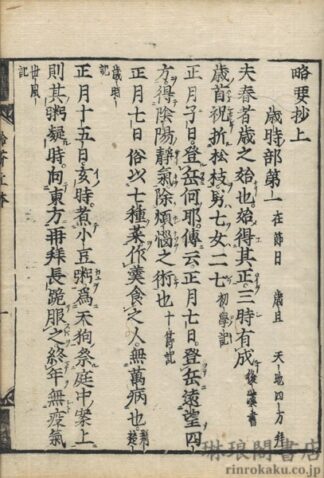 略要抄上
歳時部第一 在節日 歳旦 天地四方拜
夫春者歳之始也始得其正三時有成 後漢書
歳首祝折松枝男七女二七 初學記
正月子日登岳何耶傳云正月七日登岳遠望四
方得陰陽静氣除煩惱之術也 十節記
正月七日俗以七種菜作羹食之人無萬病也 荊楚
歳時
記
正月十五日亥時煮小豆粥爲天狗祭庭中案上
則其粥凝時向東方再拜長跪服之終年無疫氣
世風
記
琳琅閣書店
rinrokaku.co.jp